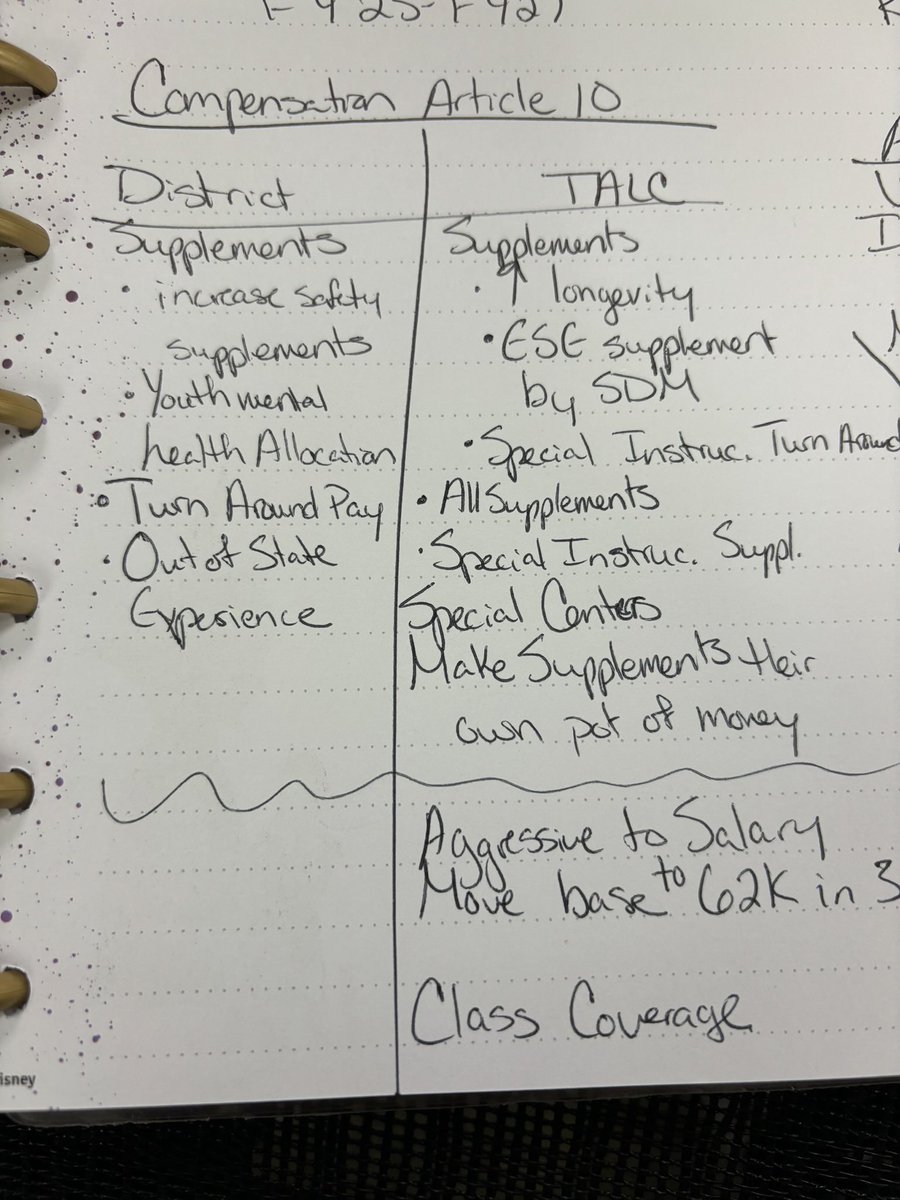 Compensation Article 10
District
Supplements
• increase safety
supplements
• Youth mental
health Allocation
• Turn Around Pay
• Out of State
Experience
TALC
Supplements
• ↑ longevity
• ESE supplement
by SDM
• Special Instruc. Turn Around
• All Supplements
• Special Instruc. Suppl.
Special Centers
Make Supplements their
own pot of money
Aggressive to Salary
Move base to 62K in 3
Class Coverage
isney